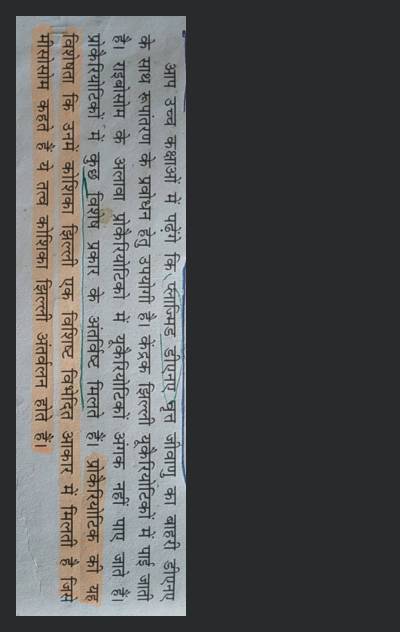 आप उच्च कक्षाओं में पढ़ेंगे कि प्लाज्मिड डीएनए वृत्त जीवाणु का बाहरी डीएनए
के साथ रूपांतरण के प्रबोधन हेतु उपयोगी है। केंद्रक झिल्ली यूकैरियोटिकों में पाई जाती
है। राइबोसोम के अलावा प्रोकैरियोटिकों में यूकैरियोटिकों अंगक नहीं पाए जाते हैं।
प्रोकैरियोटिकों में कुछ विशेष प्रकार के अंतर्विष्ट मिलते हैं। प्रोकैरियोटिक की यह
विशेषता कि उनमें कोशिका झिल्ली एक विशिष्ट विभेदित आकार में मिलती है जिसे
मीसोसोम कहते हैं ये तत्व कोशिका झिल्ली अंतर्वलन होते हैं।